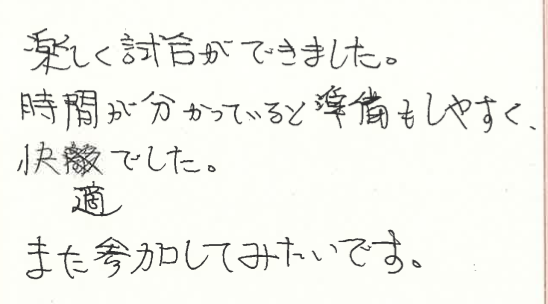 楽しく試合ができました。
時間が分かっていると準備もしやすく、
快適でした。
また参加してみたいです。